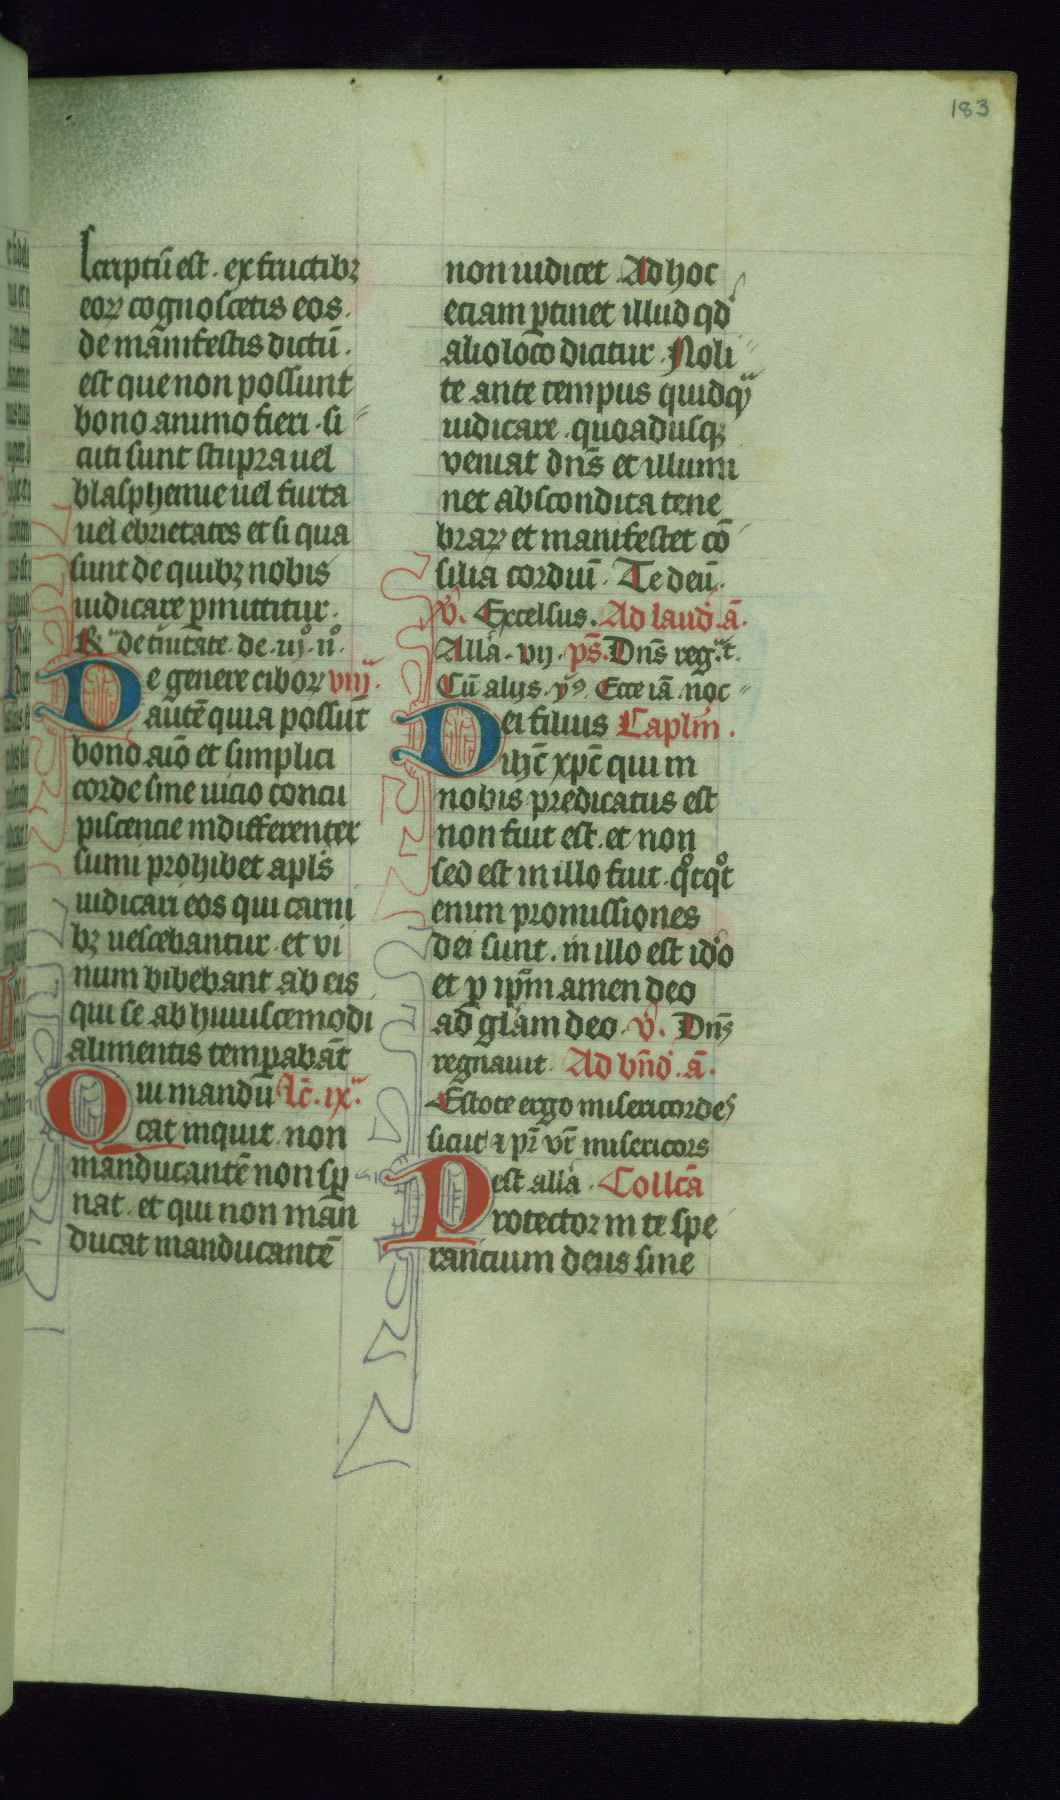 183
scriptū est. ex fructibꝫ
eoꝝ cognoscetis eos.
de manifestis dictū.
est que non possunt
bono animo fieri. si
cuti sunt stupra uel
blasphemie uel furta
uel ebrietates et si qua
sunt de quibꝫ nobis
iudicare ꝑmittitur.
de t̾nitate. de. iijͦ. nͦ.
De genere ciboꝝ viij.
autē quia possūt
bono aīo et simplici
corde sine uicio concu
piscencie indifferenter
sumi prohibet apl̄s
iudicari eos qui carni
bꝫ uescebantur. et vi
num bibebant ab eis
qui se ab huiuscemodi
alimentis temꝑabāt
Qui mandu Lc̄. ix.
cat inquit non
manducantē non sꝑ
nat. et qui non man
ducat manducantē
non iudicet. Ad hoc
eciam ꝑtinet illud qd̄
alio loco dicitur. Noli
te ante tempus quidqͣ
iudicare. quoadusqꝫ
veniat dn̄s et illumi
net abscondita tene
braꝝ et manifestet cō
silia cordiū. Te deū.
v̄. Excelsus. Ad laud. ā.
Alla. vij. ps̄. Dn̄s reg.ͣt.
Cū alijs. yꝰ. Ecce iā noc
Dei filius Caplm̄.
ihc̄ xpc̄ qui in
nobis predicatus est
non fuit est. et non
sed est in illo fuit. qͦtqͦt
enim promissiones
dei sunt. in illo est idͦo
et ꝑ ip̄m amen deo
ad glām deo. v̄. Dn̄s
regnauit. Ad bn̄d. ā.
Estote ergo misericordes
sicut ⁊ pr̄ vr̄ misericors
est allā. Collcā
Protector in te spe
rancium deus sine